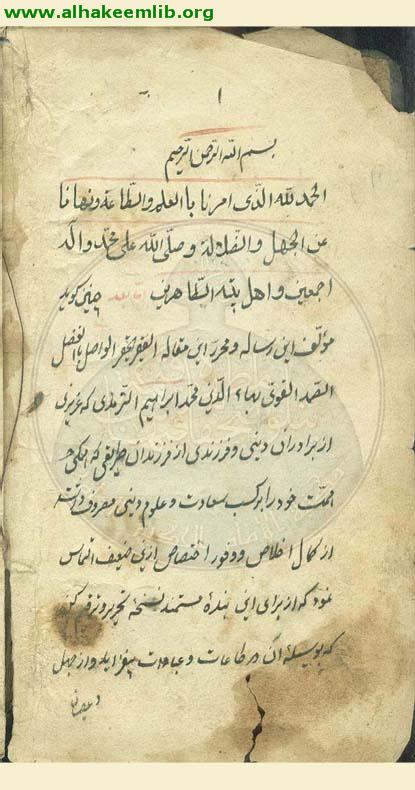 www.alhakeemlib.org
١
بسم الله الرحمن الرحیم
الحمد لله الذی امرنا با العلم والطاعة ونهانا
عن الجهل والضلالة وصلی الله علی محمد وآله
اجمعین واهل بیته الطاهرین اما بعد چنین گوید
مؤلف این رساله ومحرر این مقاله الفقیر الحقیر الواصل بالفضل
الصمد القوی بهاء الدین محمد ابراهیم الترمذی که عزیزی
از برادران دینی وفرزندی از فرزندان طریقی که همگی
همت خود را بر کسب سعادت وعلوم دینی مصروف داشته
از کمال اخلاص ووفور اختصاص ازین ضعیف التماس
نمود که از برای این بندۀ مستمند نسخۀ تحریر وترقیم کنید
که بوسیلۀ آن در طاعات وعبادات بیفزاید واز جهل
وعصیان